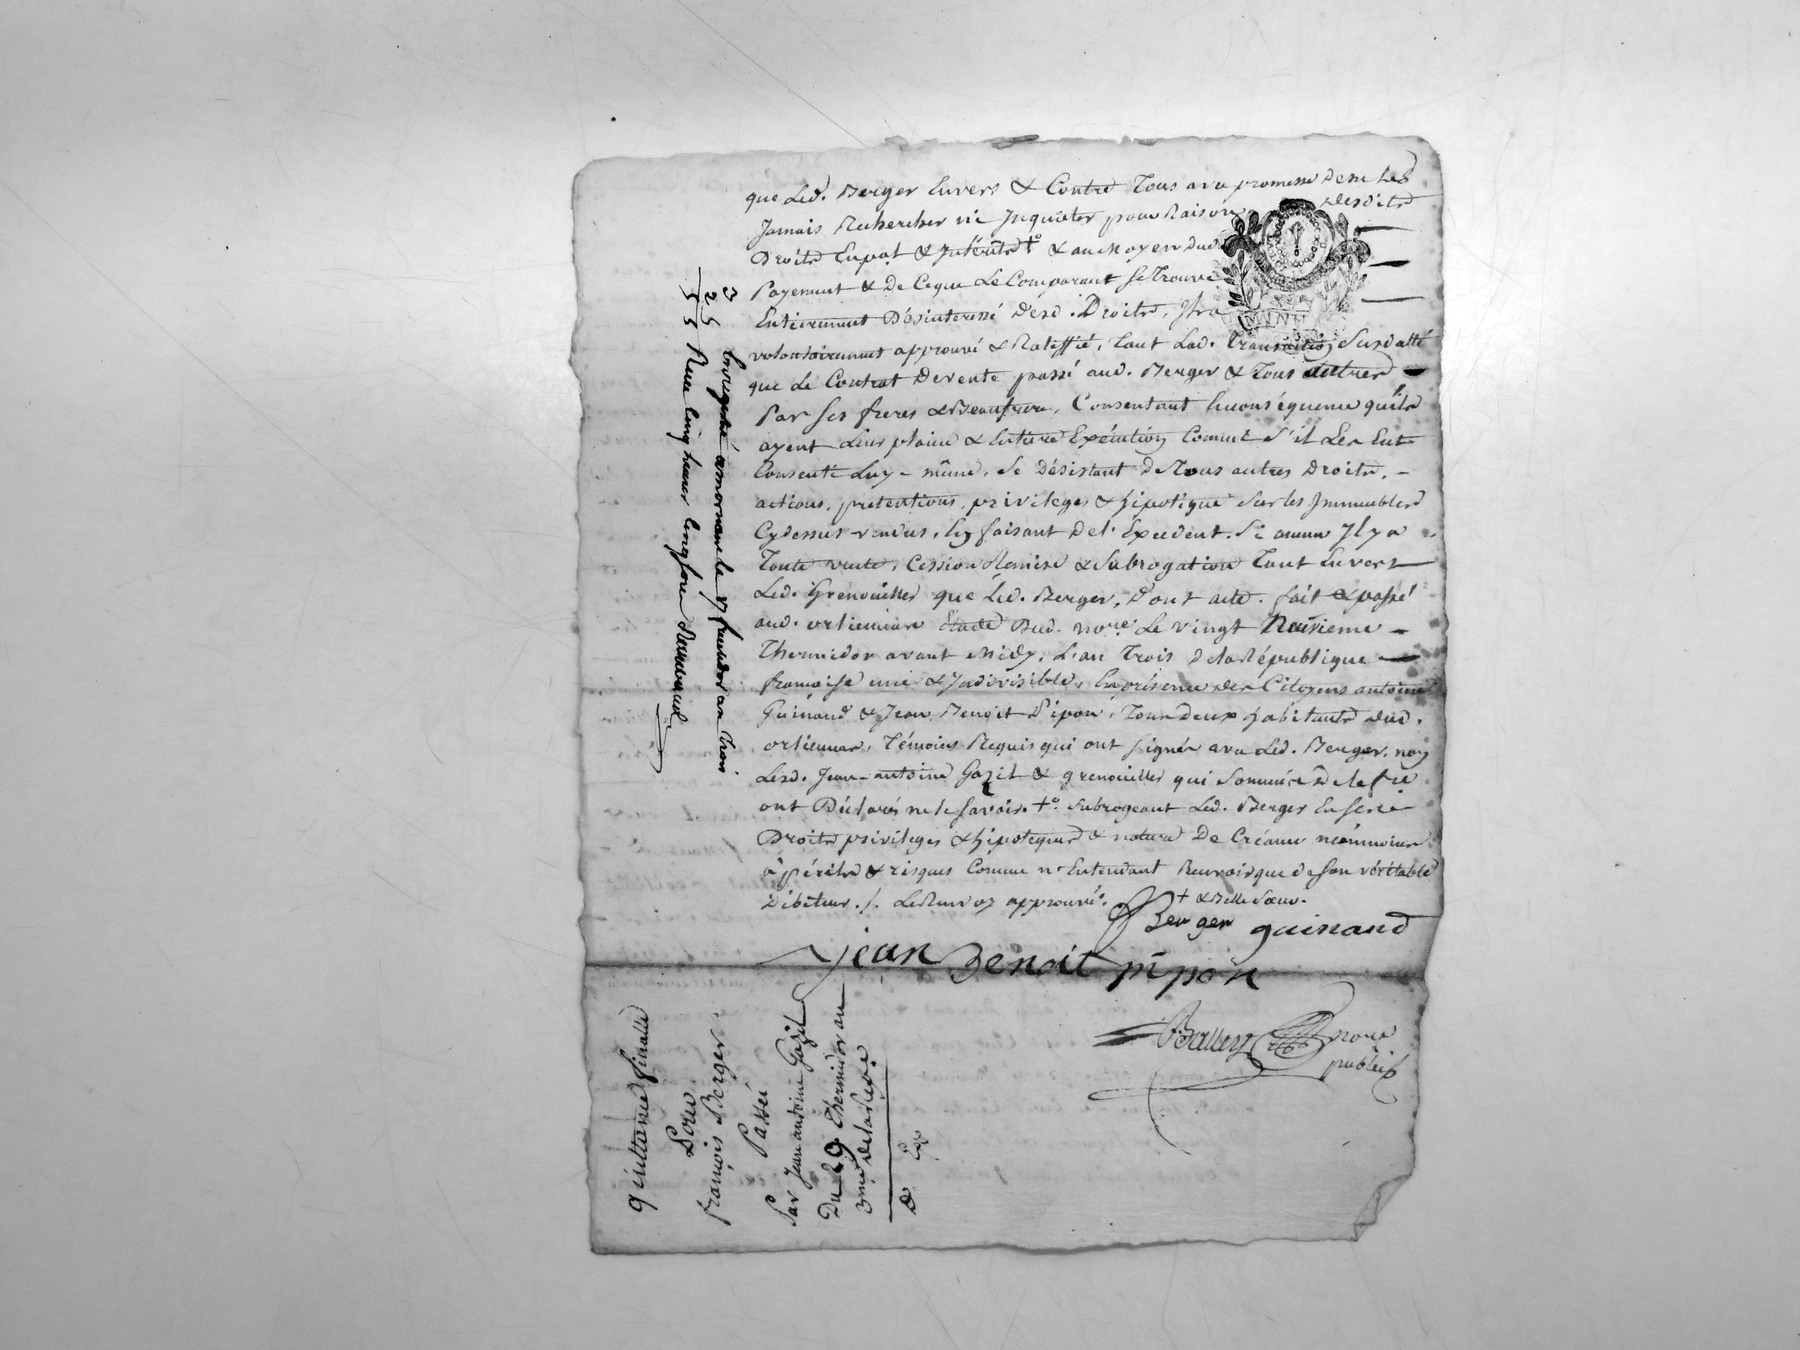 que Led. Berger Envers & Contre Tous avec promesse de ne Les
Jamais Rechercher ni Inquieter pour Raison desdits
Droits En pal. & Intérêts +° & au moyen dud.
Payement & De Ceque Le Comparant se Trouve
Entierement Désinteressé desd. Droits, Il a
volontairement approuvé & Ratiffié, Tant Lad. Transaction Susdatté
que Le Contrat de vente passé aud. Berger & Tous autres
Par ses freres & Beaufrere, Consentant En conséquence qu'ils
ayent Leur plaine & Entiere Exécution Comme S'il Les Eut
Consenti Luy-même, se désistant de Tous autres Droits,
actions, pretentions, privileges & hipotique sur les Immeubles
Cydessus vendus, En faisant de l'Excedent. Si aucun Il y a
Toute vente, Cession Remise & Subrogation Tant Envers
Led. Grenouilles que Led. Berger, Dont acte. fait & passé
aud. orliennas Etude Dud. nore. Le vingt Neuvieme
Thermidor avant Midy, L'an Trois dela République
francoise une & Indivisible, En présence des Citoyens antoine
Guinand & Jean Benoit Pipon, Tous deux habitants dud.
orliennas, Témoins Requis qui ont signés avec Led. Berger, non
Lesd. Jean-antoine Gazil & grenouilles qui Sommés de le fre
ont Déclarés ne le savoir. +° subrogeant Led. Berger En ses
Droits privileges & hipoteques & nature De Créance néanmoins
à périls & risques Comme n'Entendant Recevoir que de son véritable
Débiteur. /. Le Renvoy approuvé. + & Belle Sœur.
Berger guinand
jean Benoit pipon
Balley nore
public
3
2 5
5 5
Enregistré a mornant le 7 fructidor an Trois
Reçu Cinq Livres Cinq sous
quittance finalle
Pour
françois Berger
Passée
Par Jean antoine Gazil
Du 29 Thermidor an
3me de la Rep.
Exp.